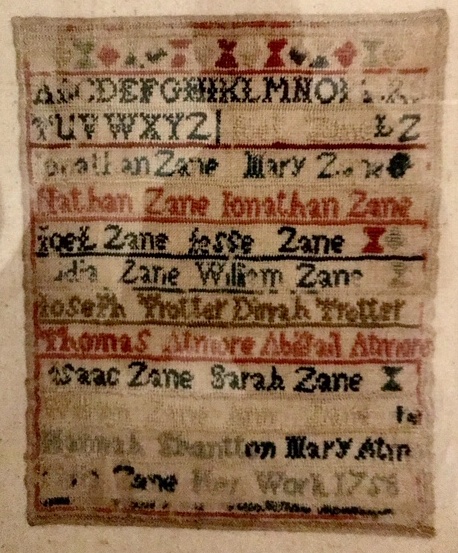 ABCDEFGHIKLMNOP
TUVWXYZ
Jonathan Zane Mary Zane
Nathan Zane Jonathan Zane
Joel Zane Jesse Zane
Lydia Zane William Zane
Joseph Trotter Dinah Trotter
Thomas Atmore Abigail Atmore
Isaac Zane Sarah Zane
Zane Ann Zane
Hannah Mary Atm
Zane Her Work 1758